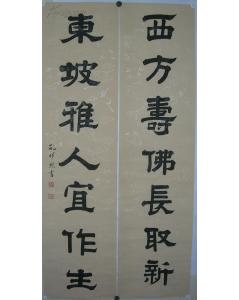 西方壽佛長取新
東坡雅人宜作主